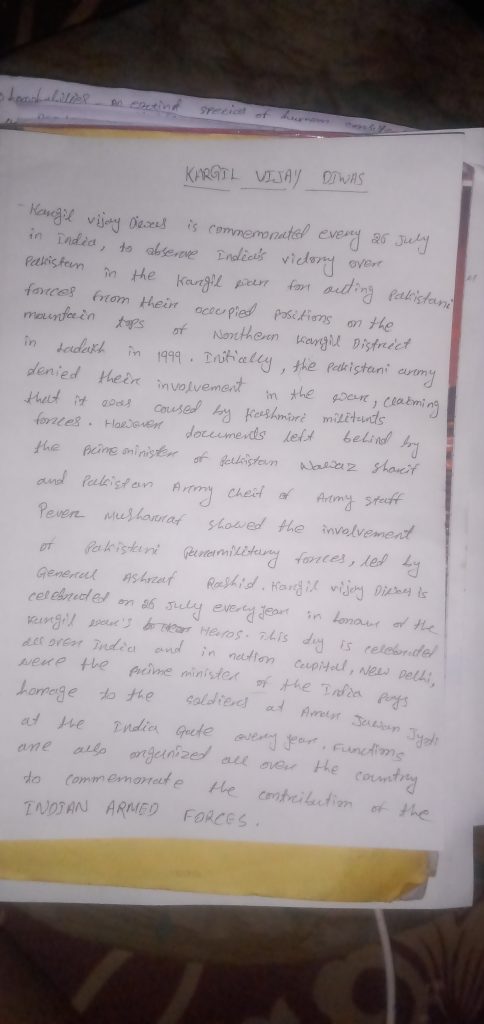 species of human
KARGIL VIJAY DIWAS
Kargil vijay Diwas is commemorated every 26 July
in India, to observe India's victory over
Pakistan in the Kargil war for outing Pakistani
forces from their occupied positions on the
mountain tops of Northern Kargil District
in Ladakh in 1999. Initially, the Pakistani army
denied their involvement in the war, claiming
that it was coused by Kashmiri militants
forces. However documents left behind by
the Prime minister of Pakistan Nawaz sharif
and Pakistan Army cheif of Army staff
Pevez Musharraf showed the involvement
of Pakistani Paramilitary forces, led by
General Ashraf Rashid. Kargil vijay Diwas is
celebrated on 26 July every year in honour of the
Kargil war's Heros. This day is celebrated
all over India and in nation capital, New Delhi,
were the prime minister of the India pays
homage to the soldiers at Amar Jawan Jyoti
at the India Gate every year. Functions
are also organized all over the country
to commemorate the contribution of the
INDIAN ARMED FORCES.